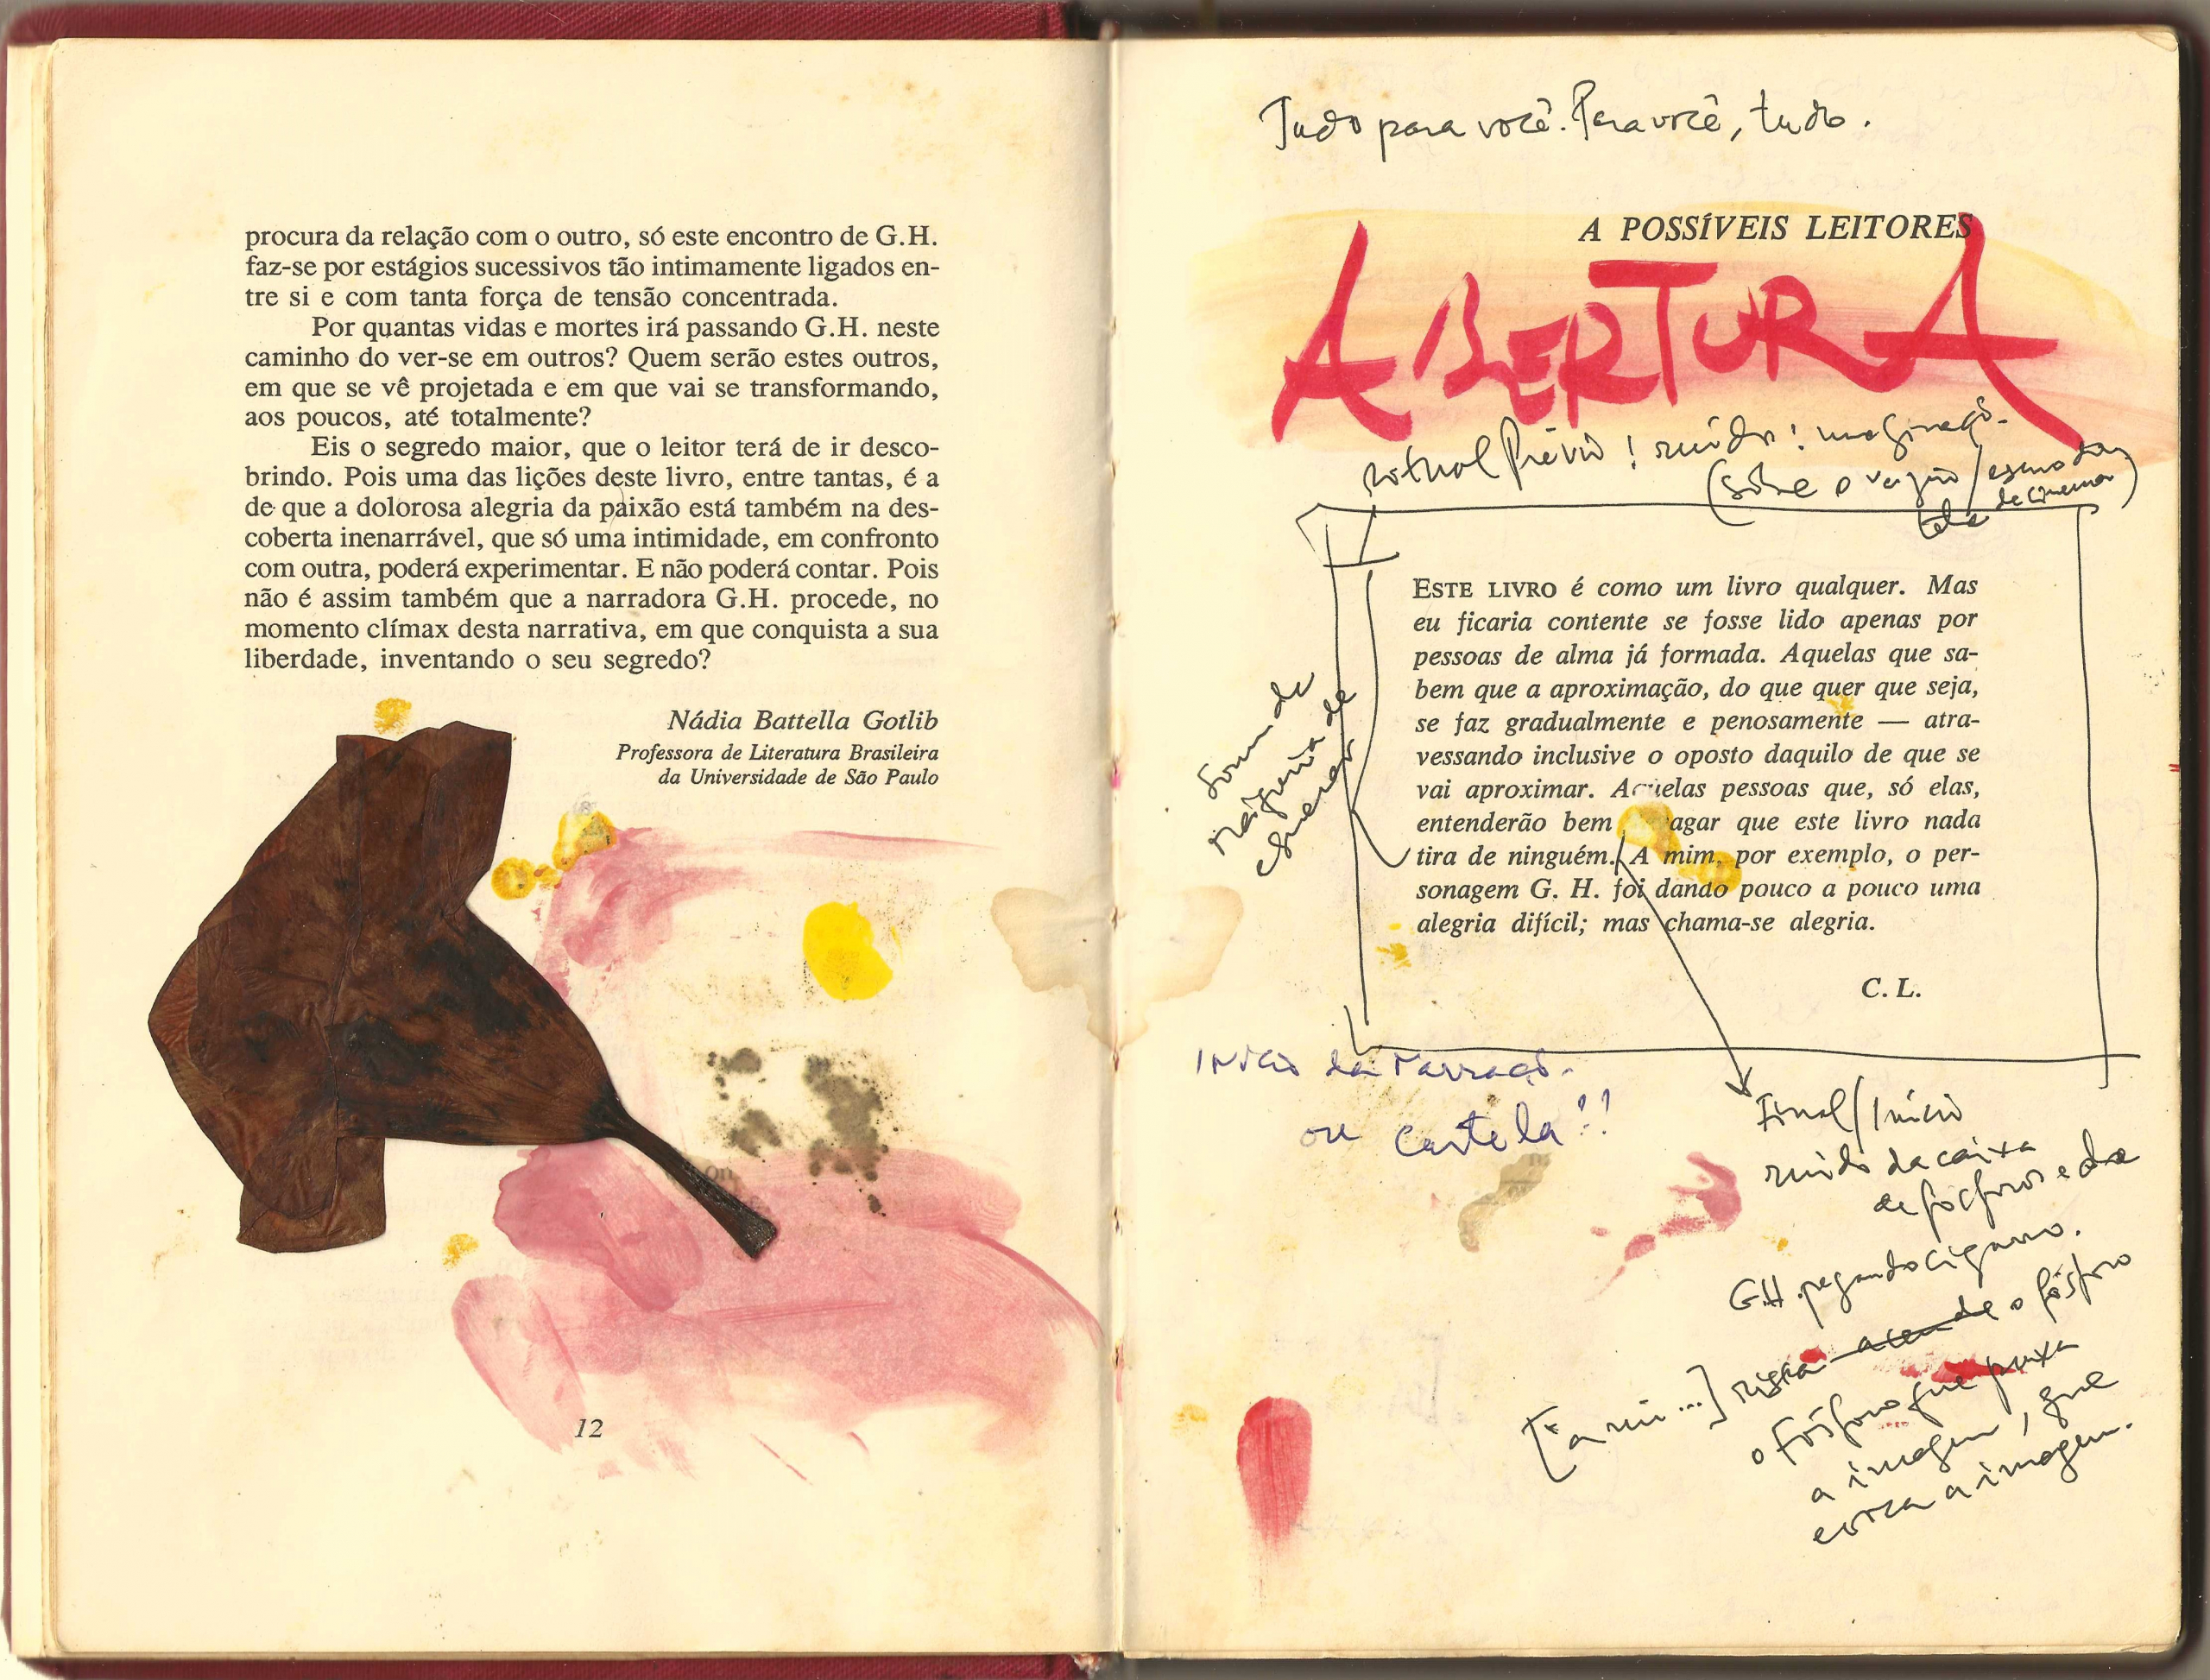 procura da relação com o outro, só este encontro de G.H.
faz-se por estágios sucessivos tão intimamente ligados en-
tre si e com tanta força de tensão concentrada.
Por quantas vidas e mortes irá passando G.H. neste
caminho do ver-se em outros? Quem serão estes outros,
em que se vê projetada e em que vai se transformando,
aos poucos, até totalmente?
Eis o segredo maior, que o leitor terá de ir desco-
brindo. Pois uma das lições deste livro, entre tantas, é a
de que a dolorosa alegria da paixão está também na des-
coberta inenarrável, que só uma intimidade, em confronto
com outra, poderá experimentar. E não poderá contar. Pois
não é assim também que a narradora G.H. procede, no
momento clímax desta narrativa, em que conquista a sua
liberdade, inventando o seu segredo?
Nádia Battella Gotlib
Professora de Literatura Brasileira
da Universidade de São Paulo
12
Tudo para você. Para você, tudo.
A POSSÍVEIS LEITORES
ABERTURA
ritual Prévio! ruído! imaginação.
(sobre o vazio / escuro da
tela de cinema)
Som da
máquina de
escrever
ESTE LIVRO é como um livro qualquer. Mas
eu ficaria contente se fosse lido apenas por
pessoas de alma já formada. Aquelas que sa-
bem que a aproximação, do que quer que seja,
se faz gradualmente e penosamente — atra-
vessando inclusive o oposto daquilo de que se
vai aproximar. Aquelas pessoas que, só elas,
entenderão bem agar que este livro nada
tira de ninguém. A mim, por exemplo, o per-
sonagem G. H. foi dando pouco a pouco uma
alegria difícil; mas chama-se alegria.
C. L.
Início da narração.
ou cartela!!
Final/Início
ruído da caixa
de fósforos e da
G.H. pegando cigarro.
["a mi...] risca acende o fósforo
o fósforo que puxa
a imagem, que
a imagem.